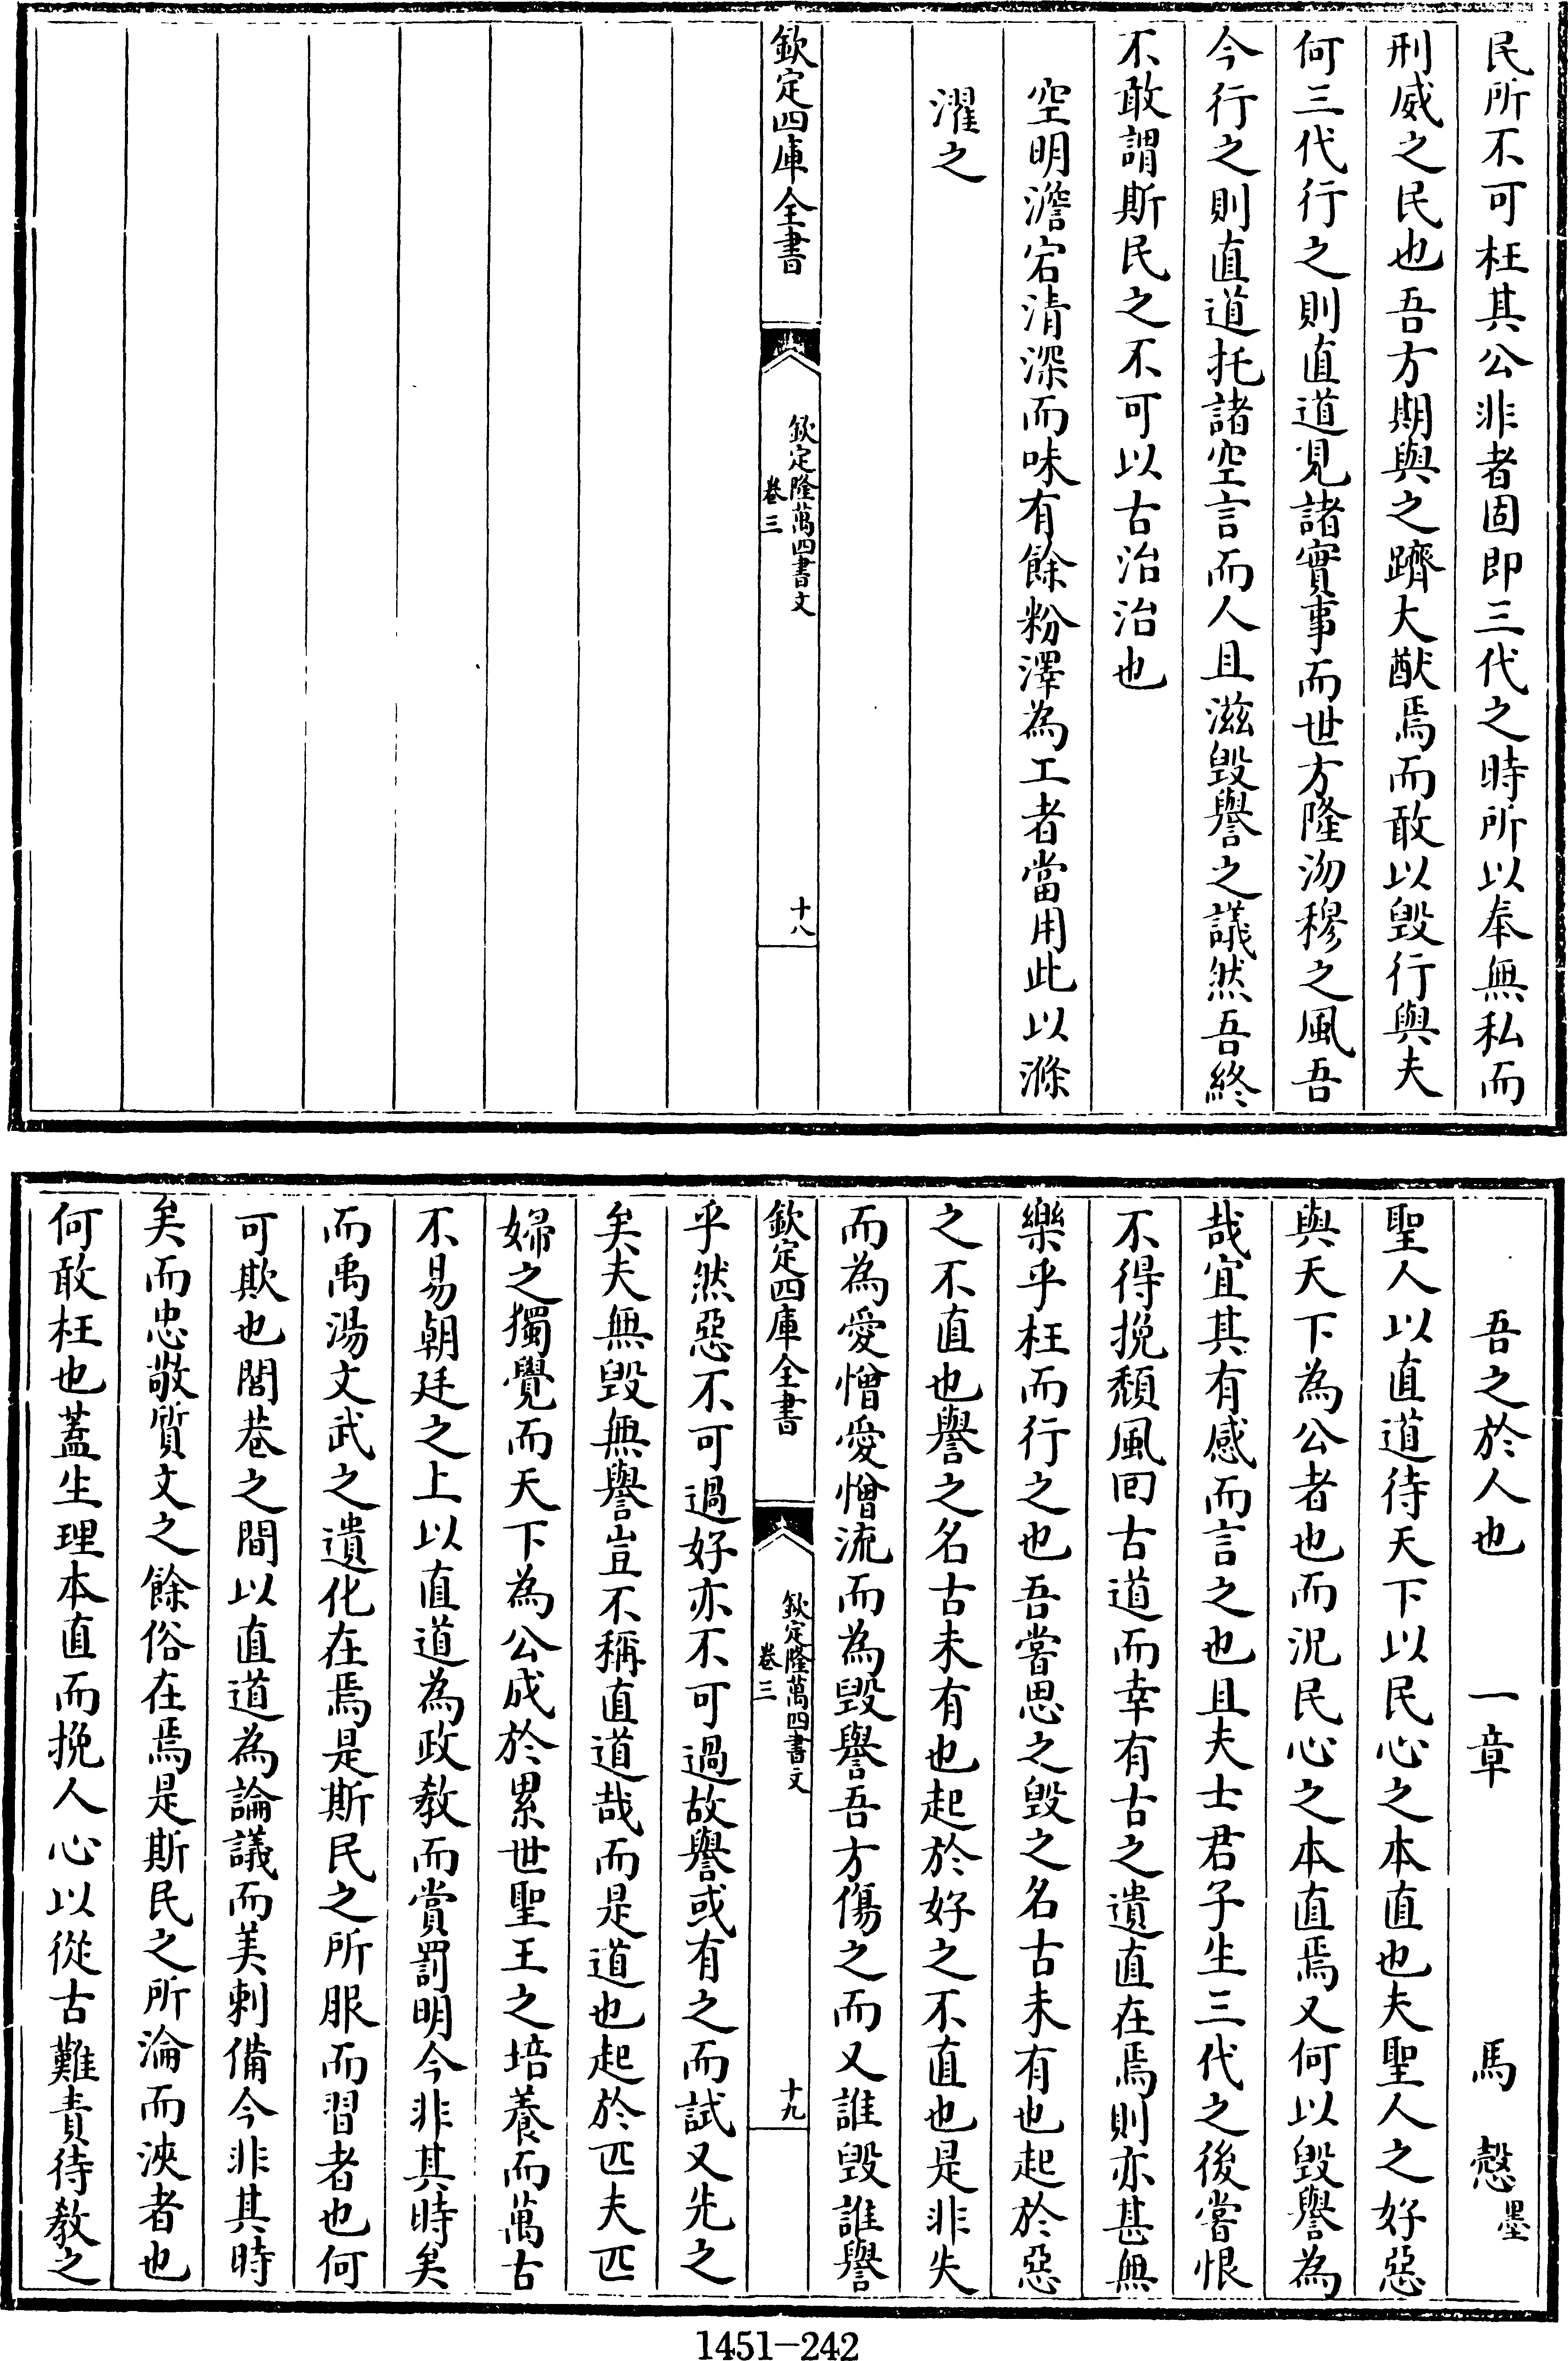 民所不可枉其公非者固即三代之時所以奉無私而
刑威之民也吾方期與之躋大猷焉而敢以毀行與夫
何三代行之則直道見諸實事而世方隆沕穆之風吾
今行之則直道托諸空言而人且滋毀譽之議然吾終
不敢謂斯民之不可以古治治也
空明澹宕清深而味有餘粉澤為工者當用此以滌
濯之
欽定四庫全書
欽定隆萬四書文
卷三
十八
吾之於人也 一章 馬慤墨
聖人以直道待天下以民心之本直也夫聖人之好惡
與天下為公者也而況民心之本直焉又何以毀譽為
哉宜其有感而言之也且夫士君子生三代之後嘗恨
不得挽頹風回古道而幸有古之遺直在焉則亦甚無
樂乎枉而行之也吾嘗思之毀之名古未有也起於惡
之不直也譽之名古未有也起於好之不直也是非失
而為愛憎愛憎流而為毀譽吾方傷之而又誰毀誰譽
欽定四庫全書
欽定隆萬四書文
卷三
十九
乎然惡不可過好亦不可過故譽或有之而試又先之
矣夫無毀無譽豈不稱直道哉而是道也起於匹夫匹
婦之獨覺而天下為公成於累世聖王之培養而萬古
不易朝廷之上以直道為政教而賞罰明今非其時矣
而禹湯文武之遺化在焉是斯民之所服而習者也何
可欺也閭巷之間以直道為論議而美刺備今非其時
矣而忠敬質文之餘俗在焉是斯民之所淪而浹者也
何敢枉也蓋生理本直而挽人心以從古難責待教之
1451-242